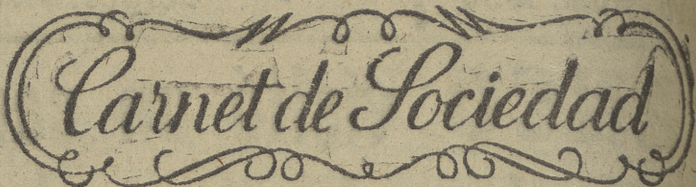 Carnet de Sociedad